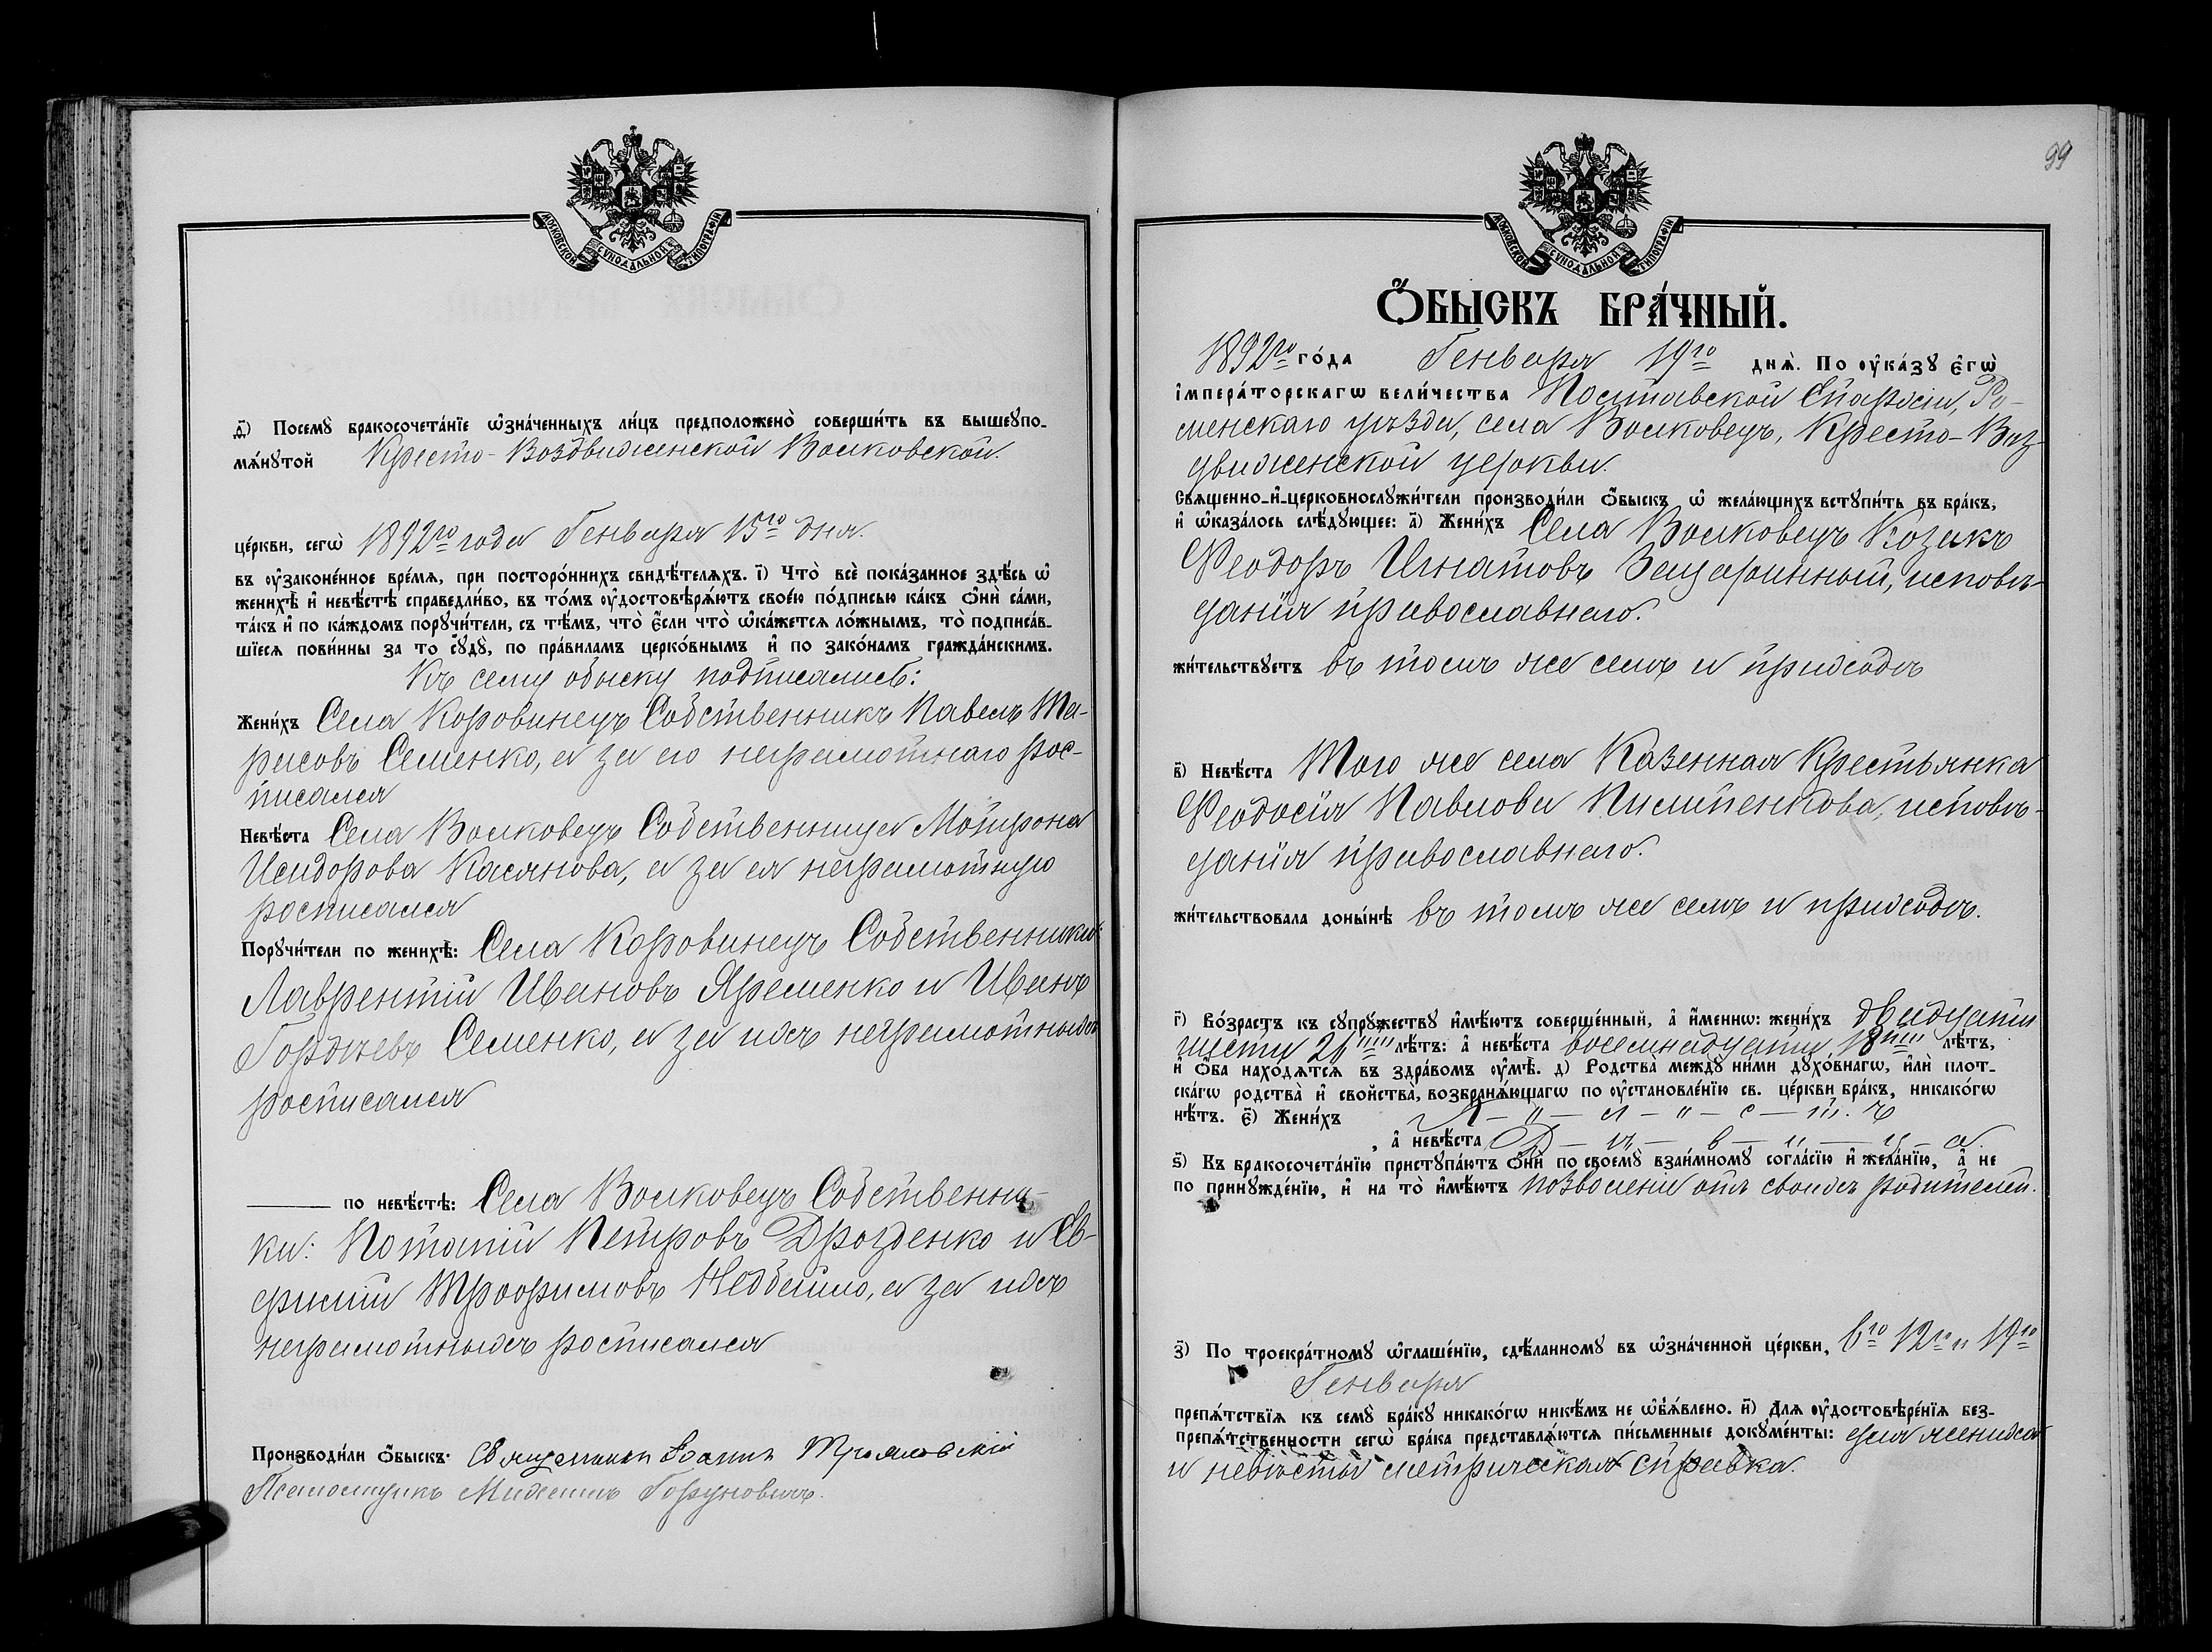 МОСКОВСКОЙ СѴНОДАЛЬНОЙ ТИПОГРАФІИ
д҃) Посемꙋ̀ бракосочета́нїе ѡ҆зна́ченныхъ ли́цъ предположено̀ соверши́ть въ вышеꙋпо-
мѧ́нꙋтой Кресто-Воздвиженской Волковской.
це́ркви, сегѡ̀ 1892го года Генваря 15го дня.
въ оу҆законе́нное вре́мѧ, при посторо́ннихъ свидѣ́телѧхъ. і҃) Что̀ всѐ пока́занное здѣ́сь ѡ҆
женихѣ̀ и҆ невѣ́стѣ справедли́во, въ то́мъ оу҆достовѣрѧ́ютъ свое́ю по́дписью ка́къ ѻ҆нѝ са́ми,
та́къ и҆ по ка́ждомъ порꙋчи́тели, съ тѣ́мъ, что̀ є҆́сли что̀ ѡ҆ка́жетсѧ ло́жнымъ, то̀ подписа́в-
шїесѧ пови́нны за то сꙋдꙋ̀, по пра́виламъ церко́внымъ и҆ по зако́намъ гражда́нскимъ.
Къ сему обыску подписались:
Жени́хъ Села Коровинецъ Собственникъ Павелъ Та-
расовъ Семенко, а за его неграмотнаго рос-
писался
Невѣ́ста Села Волковецъ Собственница Мотрона
Исидорова Касянова, а за ея неграмотную
росписался
Порꙋчи́тели по женихѣ̀: Села Коровинецъ Собственники:
Лаврентій Ивановъ Яременко и Иванъ
Гордѣевъ Семенко, а за ихъ неграмотныхъ
росписался
по невѣ́стѣ: Села Волковецъ Собственни-
ки: Потапій Петровъ Дрозденко и Ев-
фимій Трофимовъ Недбайло, а за ихъ
неграмотныхъ росписался
Производи́ли ѻ҆́быскъ: Священникъ Іоаннъ
Псаломщикъ Михаилъ
99
МОСКОВСКОЙ СѴНОДАЛЬНОЙ ТИПОГРАФІИ
Ѻ҆́БЫСКЪ БРА́ЧНЫЙ.
1892го го́да Генваря 19го днѧ̀. По оу҆ка́зꙋ є҆гѡ̀
і҆мпера́торскагѡ вели́чества Полтавской Епархіи, Ро-
менскаго уѣзда, села Волковецъ, Кресто-Воз-
движенской церкви.
Свѧщенно-и҆-церковнослꙋжи́тели производи́ли ѻ҆́быскъ ѡ҆ жела́ющихъ вступи́ть въ бра́къ,
и҆ ѡ҆каза́лось слѣ́дꙋющее: а҃) Жени́хъ Села Волковецъ Козакъ
Феодоръ Игнатовъ Зацаринный, исповѣ-
данія православнаго.
жи́тельствꙋетъ въ томъ же селѣ и приходѣ
в҃) Невѣ́ста Того же села Казенная Крестьянка
Феодосія Павлова Пилипенкова, исповѣ-
данія православнаго.
жи́тельствовала доны́нѣ въ томъ же селѣ и приходѣ.
г҃) Во́зрастъ къ сꙋпрꙋ́жествꙋ и҆мѣ́ютъ соверше́нный, а҆ и҆́меннѡ: жени́хъ двадцати
шести 26ти лѣ́тъ: а҆ невѣ́ста восемнадцати 18ти лѣ́тъ,
и҆ ѻ҆́ба нахо́дѧтсѧ въ здра́вомъ оу҆мѣ̀. д) Родства̀ междꙋ̀ ни́ми дꙋхо́внагѡ, и҆лѝ плот-
ска́гѡ родства̀ и҆ сво́йства, возбранѧ́ющагѡ по оу҆становле́нїю св. це́ркви бра́къ, никако́гѡ
нѣ́тъ. є҃) Жени́хъ х - о - л - о - с - т - ъ
, а҆ невѣ́ста Д - ѣ - в - и - ц - а.
ѕ҃) Къ бракосочета́нїю приступа́ютъ ѻ҆нѝ по своемꙋ̀ взаи́мномꙋ согла́сїю и҆ жела́нїю, а҆ не
по принꙋжде́нїю, и҆ на то̀ и҆мѣ́ютъ позволеніи отъ своихъ родителей.
з҃) По троекра́тномꙋ ѡ҆глаше́нїю, сдѣ́ланномꙋ въ ѡ҆зна́ченной це́ркви, 6го 12го и 19го
Генваря
препѧ́тствїѧ къ семꙋ̀ бра́кꙋ никако́гѡ никѣ́мъ не ѡ҆б̾ѧ́влено. и҃) Длѧ оу҆достовѣре́нїѧ без-
препѧ́тственности сегѡ̀ бра́ка представлѧ́ютсѧ пи́сьменные докꙋме́нты: для жениха
и невѣсты метрическая справка.